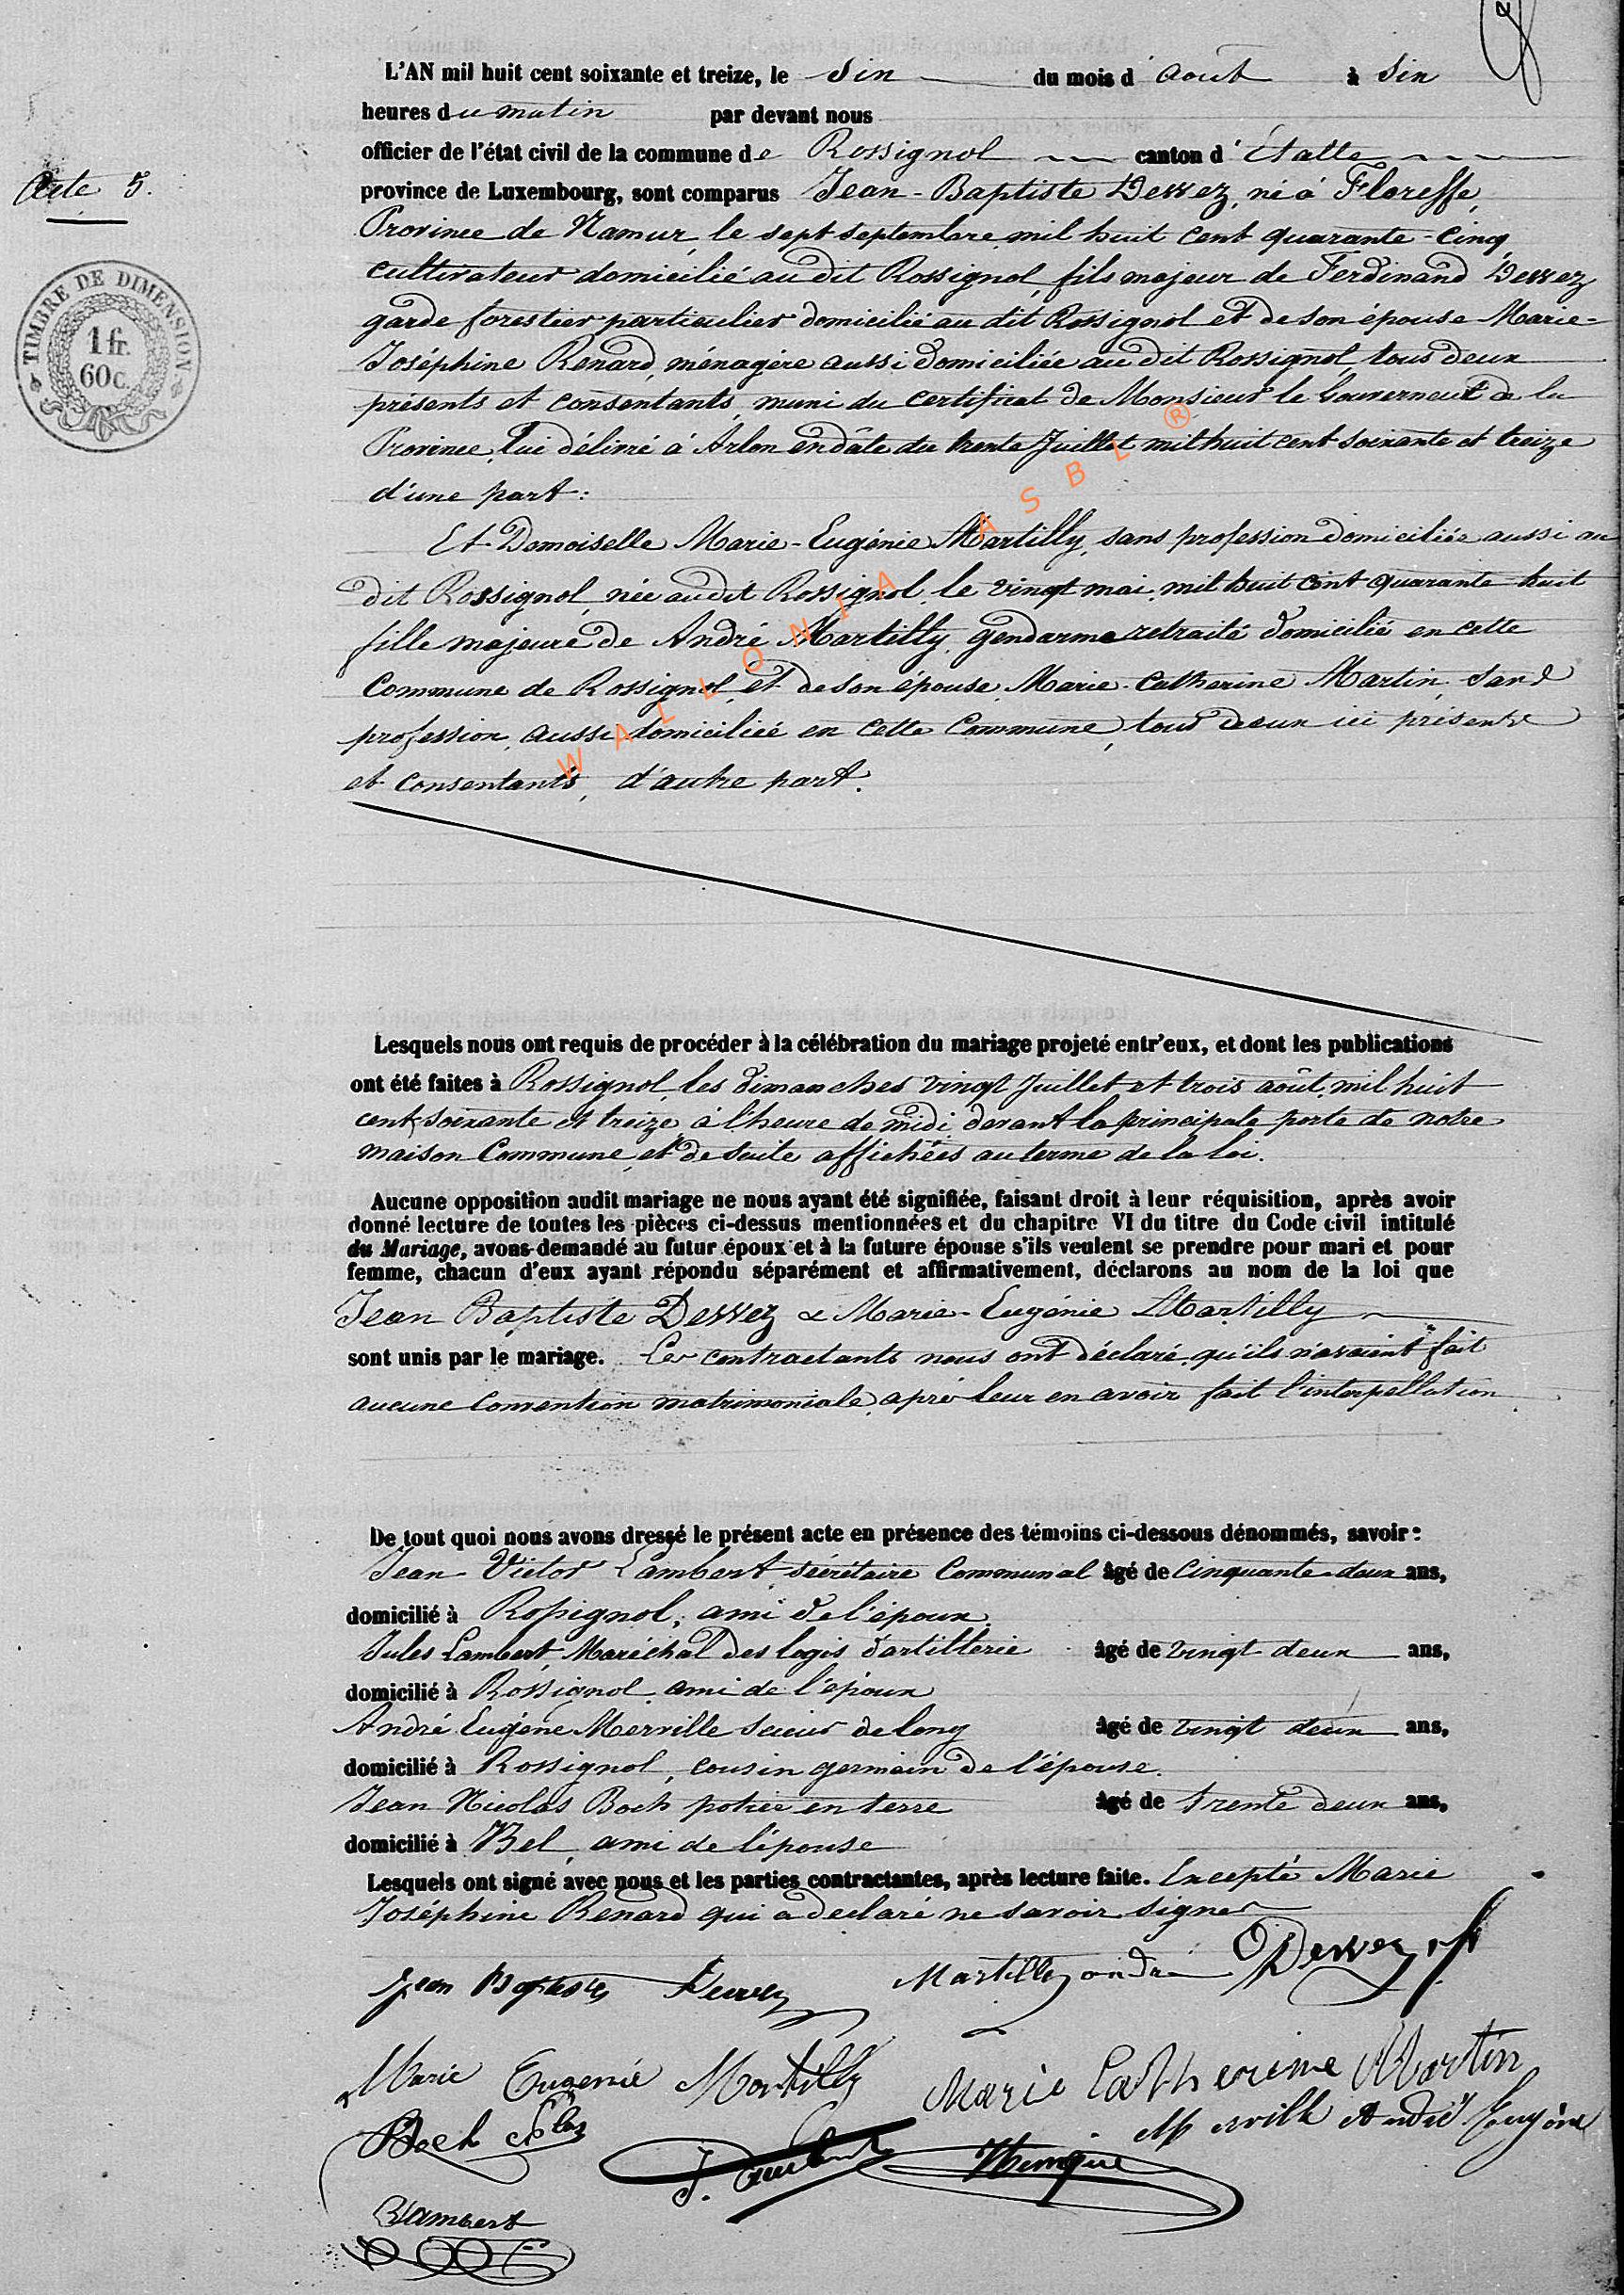 L'AN mil huit cent soixante et treize, le Six du mois d'août à Six
heures du matin par devant nous
officier de l'état civil de la commune de Rossignol canton d'Étalle
Acte 5.
province de Luxembourg, sont comparus Jean-Baptiste Dessez, né à Floreffe,
Province de Namur, le sept septembre mil huit cent quarante-cinq
cultivateur domicilié au dit Rossignol, fils majeur de Ferdinand Dessez
garde forestier particulier domicilié au dit Rossignol et de son épouse Marie-
Joséphine Renard, ménagère aussi domiciliée au dit Rossignol, tous deux
présents et consentants, muni du certificat de Monsieur le Gouverneur de la
Province, lui délivré à Arlon en dâte du trente Juillet mil huit cent soixante et treize
d'une part:
TIMBRE DE DIMENSION
1 fr.
60 c.
Et Demoiselle Marie-Eugénie Martilly, sans profession domiciliée aussi au
dit Rossignol, née audit Rossignol, le vingt mai, mil huit cent quarante huit
fille majeure de André Martilly, gendarme retraité domicilié en cette
Commune de Rossignol, et de son épouse, Marie-Catherine Martin, sans
profession, aussi domiciliée en cette Commune, tous deux ici présents
et consentants, d'autre part.
WALLONIA ASBL ®
Lesquels nous ont requis de procéder à la célébration du mariage projeté entr'eux, et dont les publications
ont été faites à Rossignol, les dimanches vingt Juillet et trois août, mil huit
cent soixante et treize à l'heure de midi devant la principale porte de notre
maison Commune, et de suite affichées au terme de la loi.
Aucune opposition audit mariage ne nous ayant été signifiée, faisant droit à leur réquisition, après avoir
donné lecture de toutes les pièces ci-dessus mentionnées et du chapitre VI du titre du Code civil intitulé
du Mariage, avons demandé au futur époux et à la future épouse s'ils veulent se prendre pour mari et pour
femme, chacun d'eux ayant répondu séparément et affirmativement, déclarons au nom de la loi que
Jean Baptiste Dessez & Marie-Eugénie Martilly
sont unis par le mariage. Les contractants nous ont déclaré, qu'ils n'avaient fait
aucune Convention matrimoniale, après leur en avoir fait l'interpellation
De tout quoi nous avons dressé le présent acte en présence des témoins ci-dessous dénommés, savoir:
Jean-Victor Lambert, sécrétaire Communal âgé de Cinquante-deux ans,
domicilié à Rossignol, ami de l'époux
Jules Lambert, Maréchal des logis d'artillerie âgé de vingt deux ans,
domicilié à Rossignol, ami de l'époux
André Eugène Merville Scieur de long âgé de vingt deux ans,
domicilié à Rossignol, cousin germain de l'épouse.
Jean Nicolas Boch potier en terre âgé de trente deux ans,
domicilié à Bel, ami de l'épouse
Lesquels ont signé avec nous et les parties contractantes, après lecture faite. Excepté Marie
Joséphine Renard qui a déclaré ne savoir signer
Jean Baptiste Dessez Martilly andré Dessez, f
Marie Eugenie Martilly Marie Catherine Martin
Boch J. Lambert Merville André Eugène
Lambert